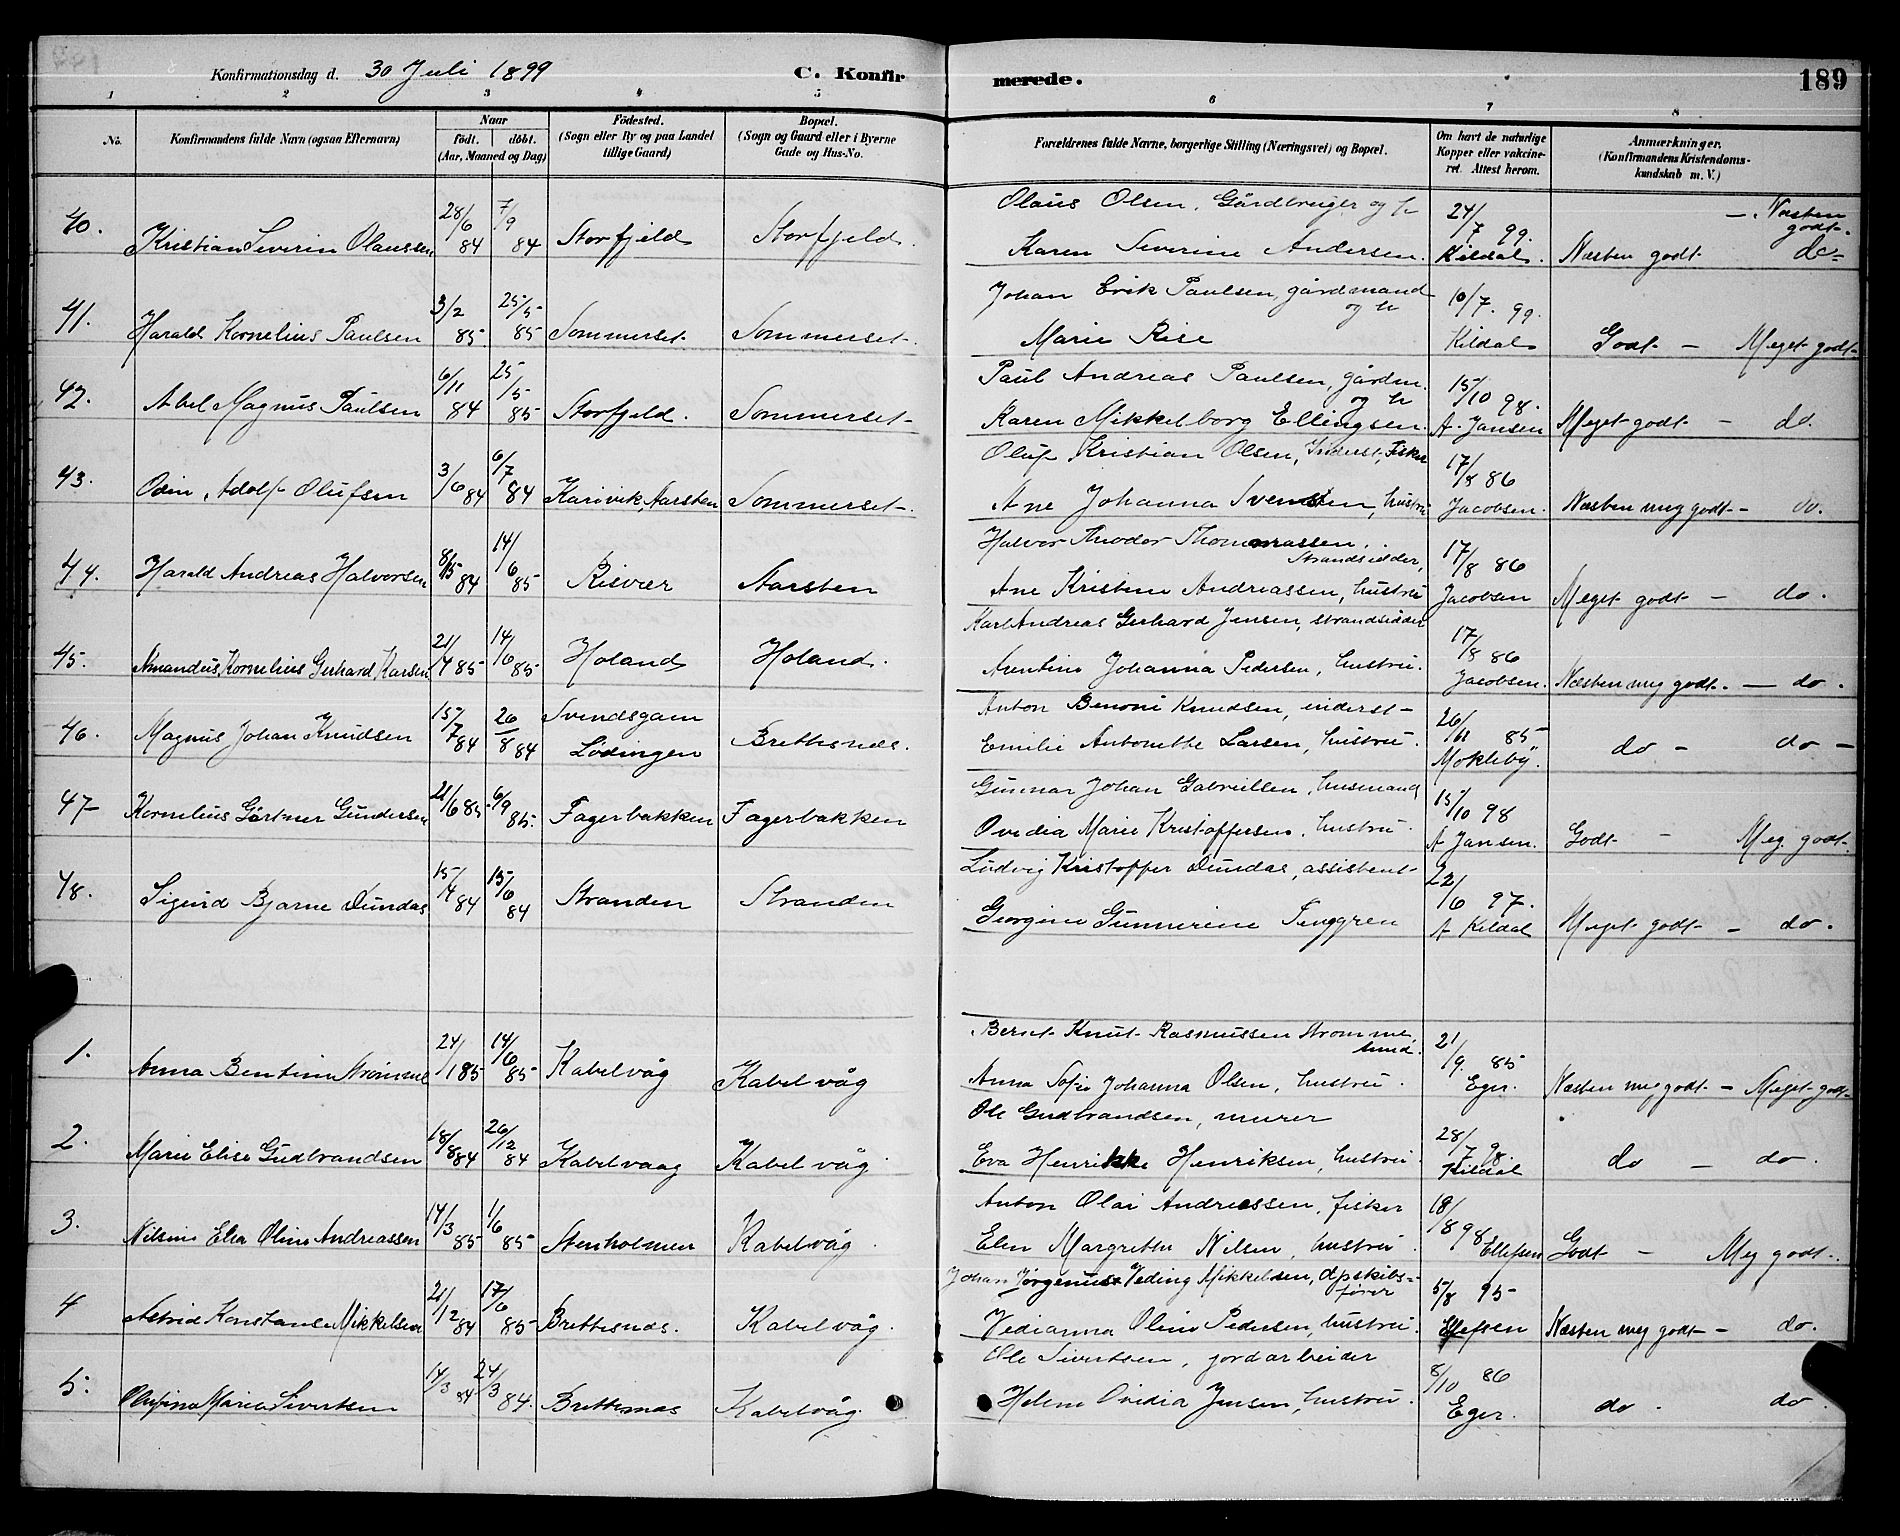 Konfirmationsdag d. 30 Juli 1899 C. Konfir merede. 189
1 2 3 4 5 6 7 8
No. Konfirmandens fulde Navn (ogsaa Efternavn) Naar födt. döbt. (Aar, Maaned og Dag) Födested. (Sogn eller By og paa Landet tillige Gaard) Bopæl. (Sogn og Gaard eller i Byerne Gade og Hus-No. Forældrenes fulde Navne, borgerlige Stilling (Næringsvei) og Bopæl. Om havt de naturlige Kopper eller vakcineret. Attest herom. Anmærkninger. (Konfirmandens Kristendomskundskab m. V.)
Olaus Olsen, Gårdbruger og h 24/7 99. — Næsten godt
40. Kristian Severin Olaussen 28/6 84 7/9 84 Storfjeld Storfjeld. Karen Severine Andersen. Kildal. Næsten godt do-
Johan Erik Paulsen, gårdmand og h 10/7. 99.
41. Harald Kornelius Paulsen 3/2 85 25/5 85 Sommerset Sommerset. Marie Rise Kildal Godt — Meget godt
Paul Andreas Paulsen, gårdm. og h 15/10 98.
42. Abel Magnus Paulsen 6/11 84 25/5 85 Storfjeld. Sommerset Karen Mikkelborg Ellingsen. A. Jansen Meget godt — do.
Oluf Kristian Olsen, Inderst, Fisker 17/8 86
43. Odin Adolf Olufsen 3/6 84 6/7 84 Karivik, Aarsten Sommerset. Ane Johanna Svendsen, hustru Jacobsen. Næsten meg godt — do.
Halvor Theodor Thommassen, Strandsidder, 17/8 86
44. Harald Andreas Halvorsen 84 14/6 85 Risvær Aarsten Ane Kristine Andreassen, hustru Jacobsen Meget godt — do.
Karl Andreas Gerhard Jensen, strandsidder 17/8 86
45. Amandus Kornelius Gerhard Karlsen 21/4 85 14/6 85 Holand Holand. Arentine Johanna Pedersen, hustru. Jacobsen. Næsten meg godt. — do.
Svendsgam Anton Benoni Knudsen, inderst 85
46. Magnus Johan Knudsen 15/7 84 26/8 84 Lödingen Brettesnæs. Emilie Antonette Larsen, hustru. Mokleby. do — do —
Gunnar Johan Gabrielsen, husmand 15/10 98
47 Kornelius Gärtner Gundersen 21/6 85 6/9 85. Fagerbakken Fagerbakken Ovidia Marie Kristoffersen, hustru. A Jansen. Godt — Meg. godt.
Ludvig Kristoffer Dundas, assistent 22/6 97.
48. Sigurd Bjarne Dundas 15/4 84 15/6 84 Stranden Stranden Georgine Gunnerine Tenggren A Kildal Meget godt — do.
Bernt Knut Rasmussen Strömme, 21/9. 85
1. Anna Bentine Strömme 24/1 85 14/6 85 Kabelvåg Kabelvåg Anna Sofie Johanna Olsen, hustru. Eger. Næsten meg godt — Meget godt
Ole Gudbrandsen, murer 28/7 98.
2. Marie Elise Gudbrandsen 18/8 84 26/12 84 Kabelvaag Kabelvåg Eva Henrikke Henriksen, hustru. Kildal do — do.
Anton Olai Andreassen, fisker 18/8 98
3. Nilsine Elea Oline Andreassen 14/3 85 1/6 85 Stenholmen Kabelvåg Elen Margrethe Nilsen, hustru. Ellefsen Godt — Meg godt.
Johan Jörgenus Veding Mikkelsen, dpskibsförer 5/8 95
4 Astrid Konstanse Mikkelsen 21/12 84 17/6 85 Brettesnæs. Kabelvåg. Vedianna Oline Pedersen, hustru. Ellefsen Næsten meg godt — do.
Ole Sivertsen, jordarbeider 8/10 86
5. Olufine Marie Sivertsen 14/3 84 24/3 84. Brettesnæs Kabelvåg. Helene Ovidia Jensen, hustru. Eger. do. do